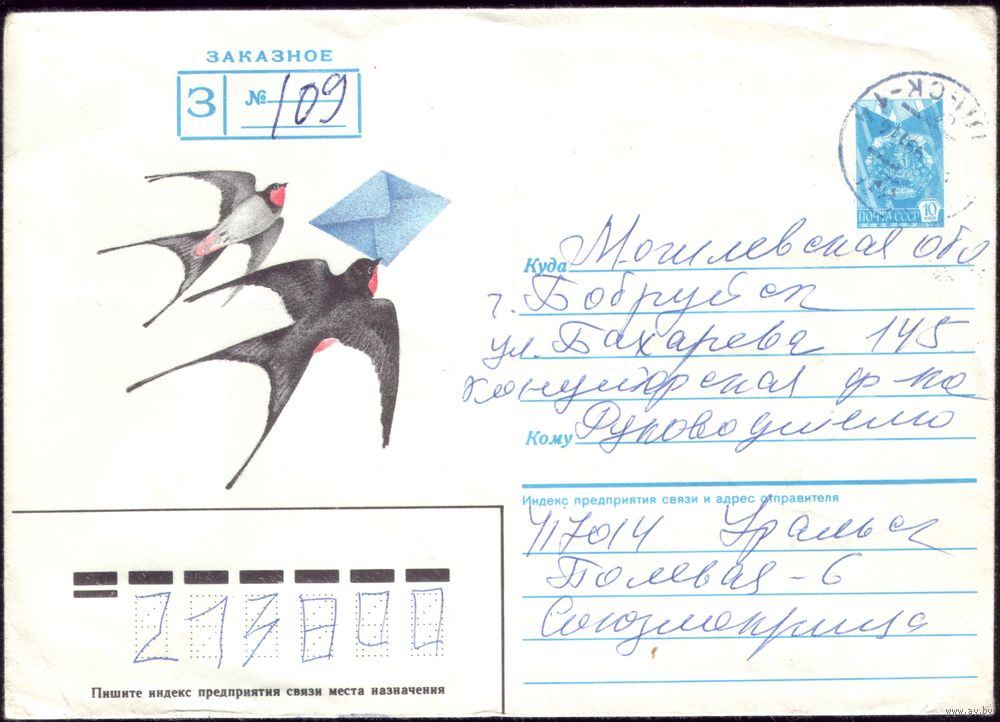 ЗАКАЗНОЕ
З № 109
ПОЧТА СССР 10 коп
Куда Могилевская обл
г. Бобруйск
ул. Бахарева 145
Кондитерская ф-ка
Кому Руководителю
Индекс предприятия связи и адрес отправителя
417014 Уральск
Полевая - 6
213800
Пишите индекс предприятия связи места назначения
www.ay.by